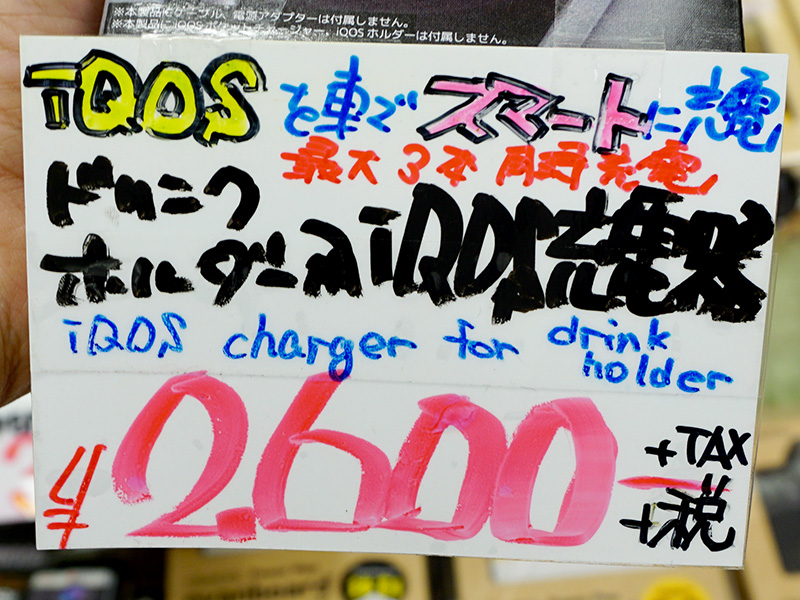 ※本製品にケーブル、電源アダプターは付属しません。
iQOSホルダーは付属しません。
iQOS を車で スマートに充電
最大3本同時充電
ドリンク
ホルダー型iQOS充電器
iQOS charger for drink holder
¥2.600 +TAX
+税